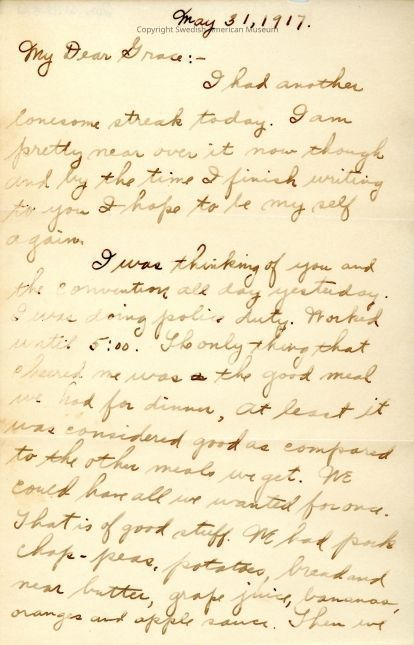 May 31, 1917.
Copyright Swedish American Museum
My Dear Grace:-
I had another
lonesome streak today. I am
pretty near over it now though
and by the time I finish writing
to you I hope to be my self
again.
I was thinking of you and
the convention all day yesterday.
I was doing police duty. Worked
until 5:00. The only thing that
cheered me was the good meal
we had for dinner, at least it
was considered good as compared
to the other meals we get. We
could have all we wanted for once.
That is of good stuff. We had pork
chop-peas, potatoes, bread and
near butter, grape juice, bananas,
oranges and apple sauce. Then we